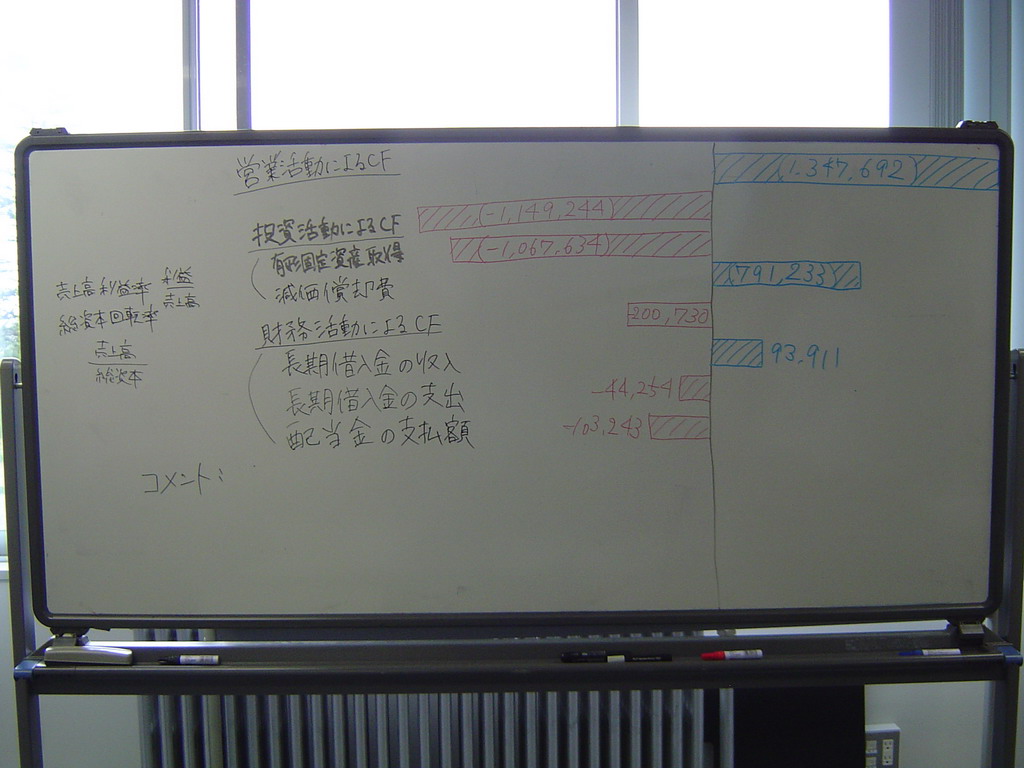 営業活動によるCF (1.347,692)
投資活動によるCF (-1,149,244)
有形固定資産取得 (-1,067,634)
減価償却費 (791,233)
財務活動によるCF -200,730
長期借入金の収入 93.911
長期借入金の支出 -44,254
配当金の支払額 -103,243
売上高利益率 利益
売上高
総資本回転率
売上高
総資本
コメント: